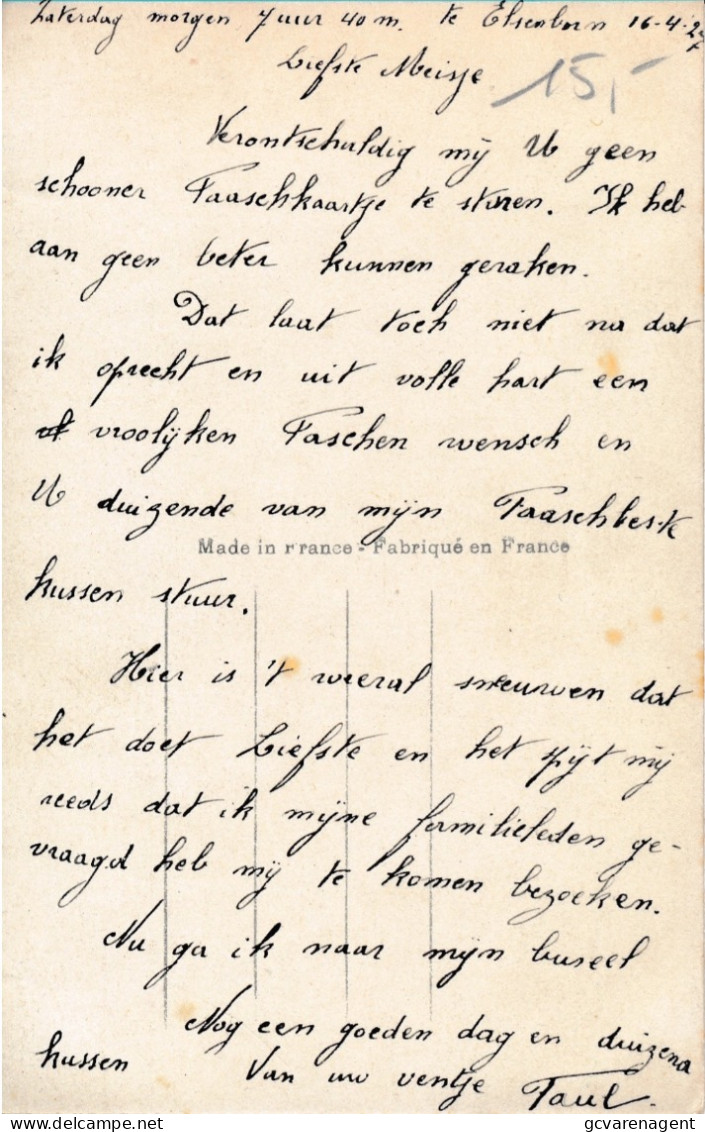 Zaterdag morgen 7 uur 40 m. te Elsenborn 16-4-27
Liefste Meisje
15,-
Verontschuldig mij U geen
schooner Paaschkaartje te sturen. Ik heb
aan geen beter kunnen geraken.
Dat laat toch niet na dat
ik oprecht en uit volle hart een
vroolijken Paschen wensch en
U duizende van mijn Paaschbeste
Made in France - Fabriqué en France
kussen stuur.
Hier is 't weeral sneeuwen dat
het doet Liefste en het spijt mij
reeds dat ik mijne familieleden ge-
vraagd heb mij te komen bezoeken.
Nu ga ik naar mijn bureel
Nog een goeden dag en duizend
kussen Van uw ventje Paul.
© gcvarenagent